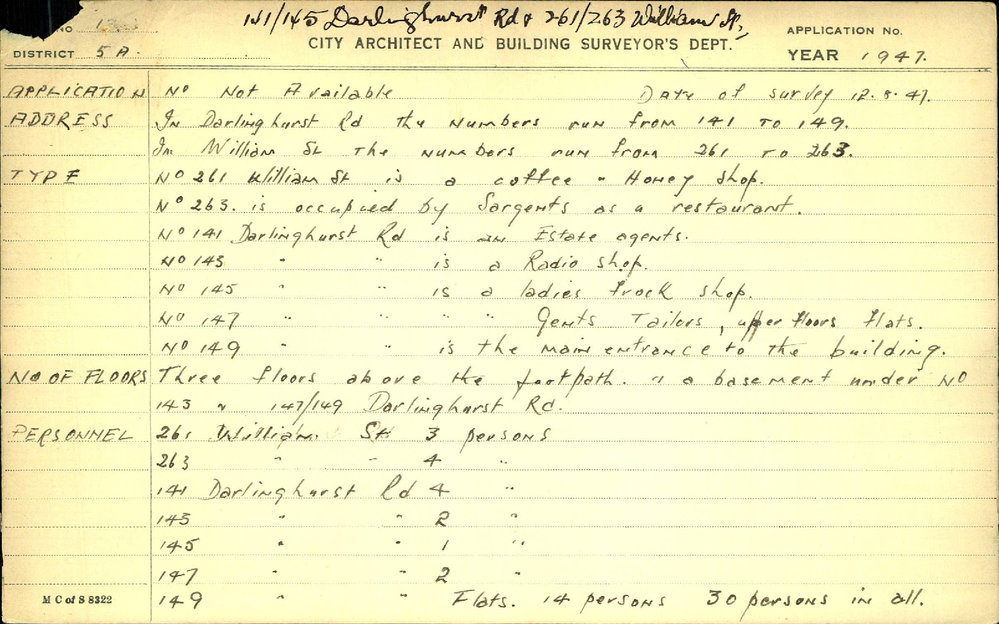 141/145 Darlinghurst Rd & 261/263 William St,
NO 13
CITY ARCHITECT AND BUILDING SURVEYOR'S DEPT.
APPLICATION No.
DISTRICT 5A.
YEAR 1947.
APPLICATION No Not Available Date of survey 12.8.47.
ADDRESS In Darlinghurst Rd the numbers run from 141 to 149.
In William St the numbers run from 261 to 263.
TYPE No 261 William St is a coffee " Honey shop.
No 263. is occupied by Sargents as a restaurant.
No 141 Darlinghurst Rd is an Estate agents.
No 143 " " is a Radio shop.
No 145 " " is a ladies frock shop.
No 147 " " " " Gents Tailors, upper floors flats.
No 149 " " is the main entrance to the building.
NO OF FLOORS Three floors above the footpath. " a basement under No
143 " 147/149 Darlinghurst Rd.
PERSONNEL 261 William St 3 persons
263 " " 4 "
141 Darlinghurst Rd 4 "
143 " " 2 "
145 " " 1 "
147 " " 2 "
M C of S 8322 149 " " Flats. 14 persons 30 persons in all.